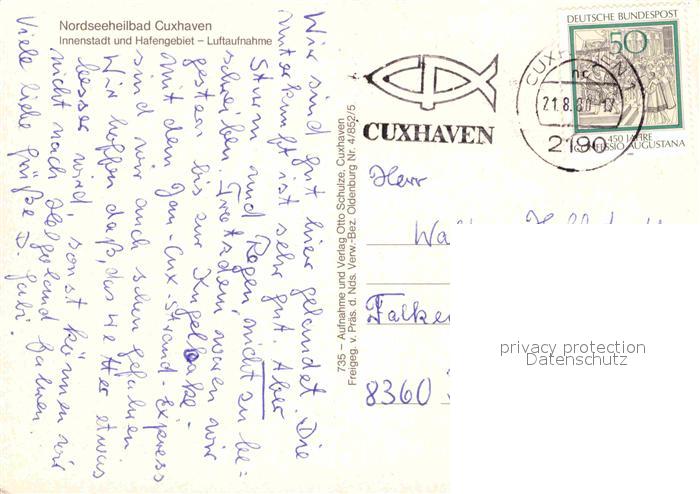 Nordseeheilbad Cuxhaven
Innenstadt und Hafengebiet – Luftaufnahme
Wir sind gut hier gelandet. Die
Unterkunft ist sehr gut. Aber
Sturm und Regen nicht zu be=
schreiben. Trotzdem waren wir
gestern bis zur Kugelbake.
Mit dem Jan-Cux-Strand-Express
sind wir auch schon gefahren.
Wir hoffen daß das Wetter etwas
besser wird, sonst können wir
nicht nach Helgoland fahren.
Viele liebe Grüße D. Gabi.
735 – Aufnahme und Verlag Otto Schulze, Cuxhaven
Freigeg. v. Präs. d. Nds. Verw.-Bez. Oldenburg Nr. 4/852/5
CUXHAVEN
CUXHAVEN 1
nc
21.8.80-17
2190
DEUTSCHE BUNDESPOST
50
450 JAHRE
CONFESSIO AUGUSTANA
Herr
Falke
8360
privacy protection
Datenschutz